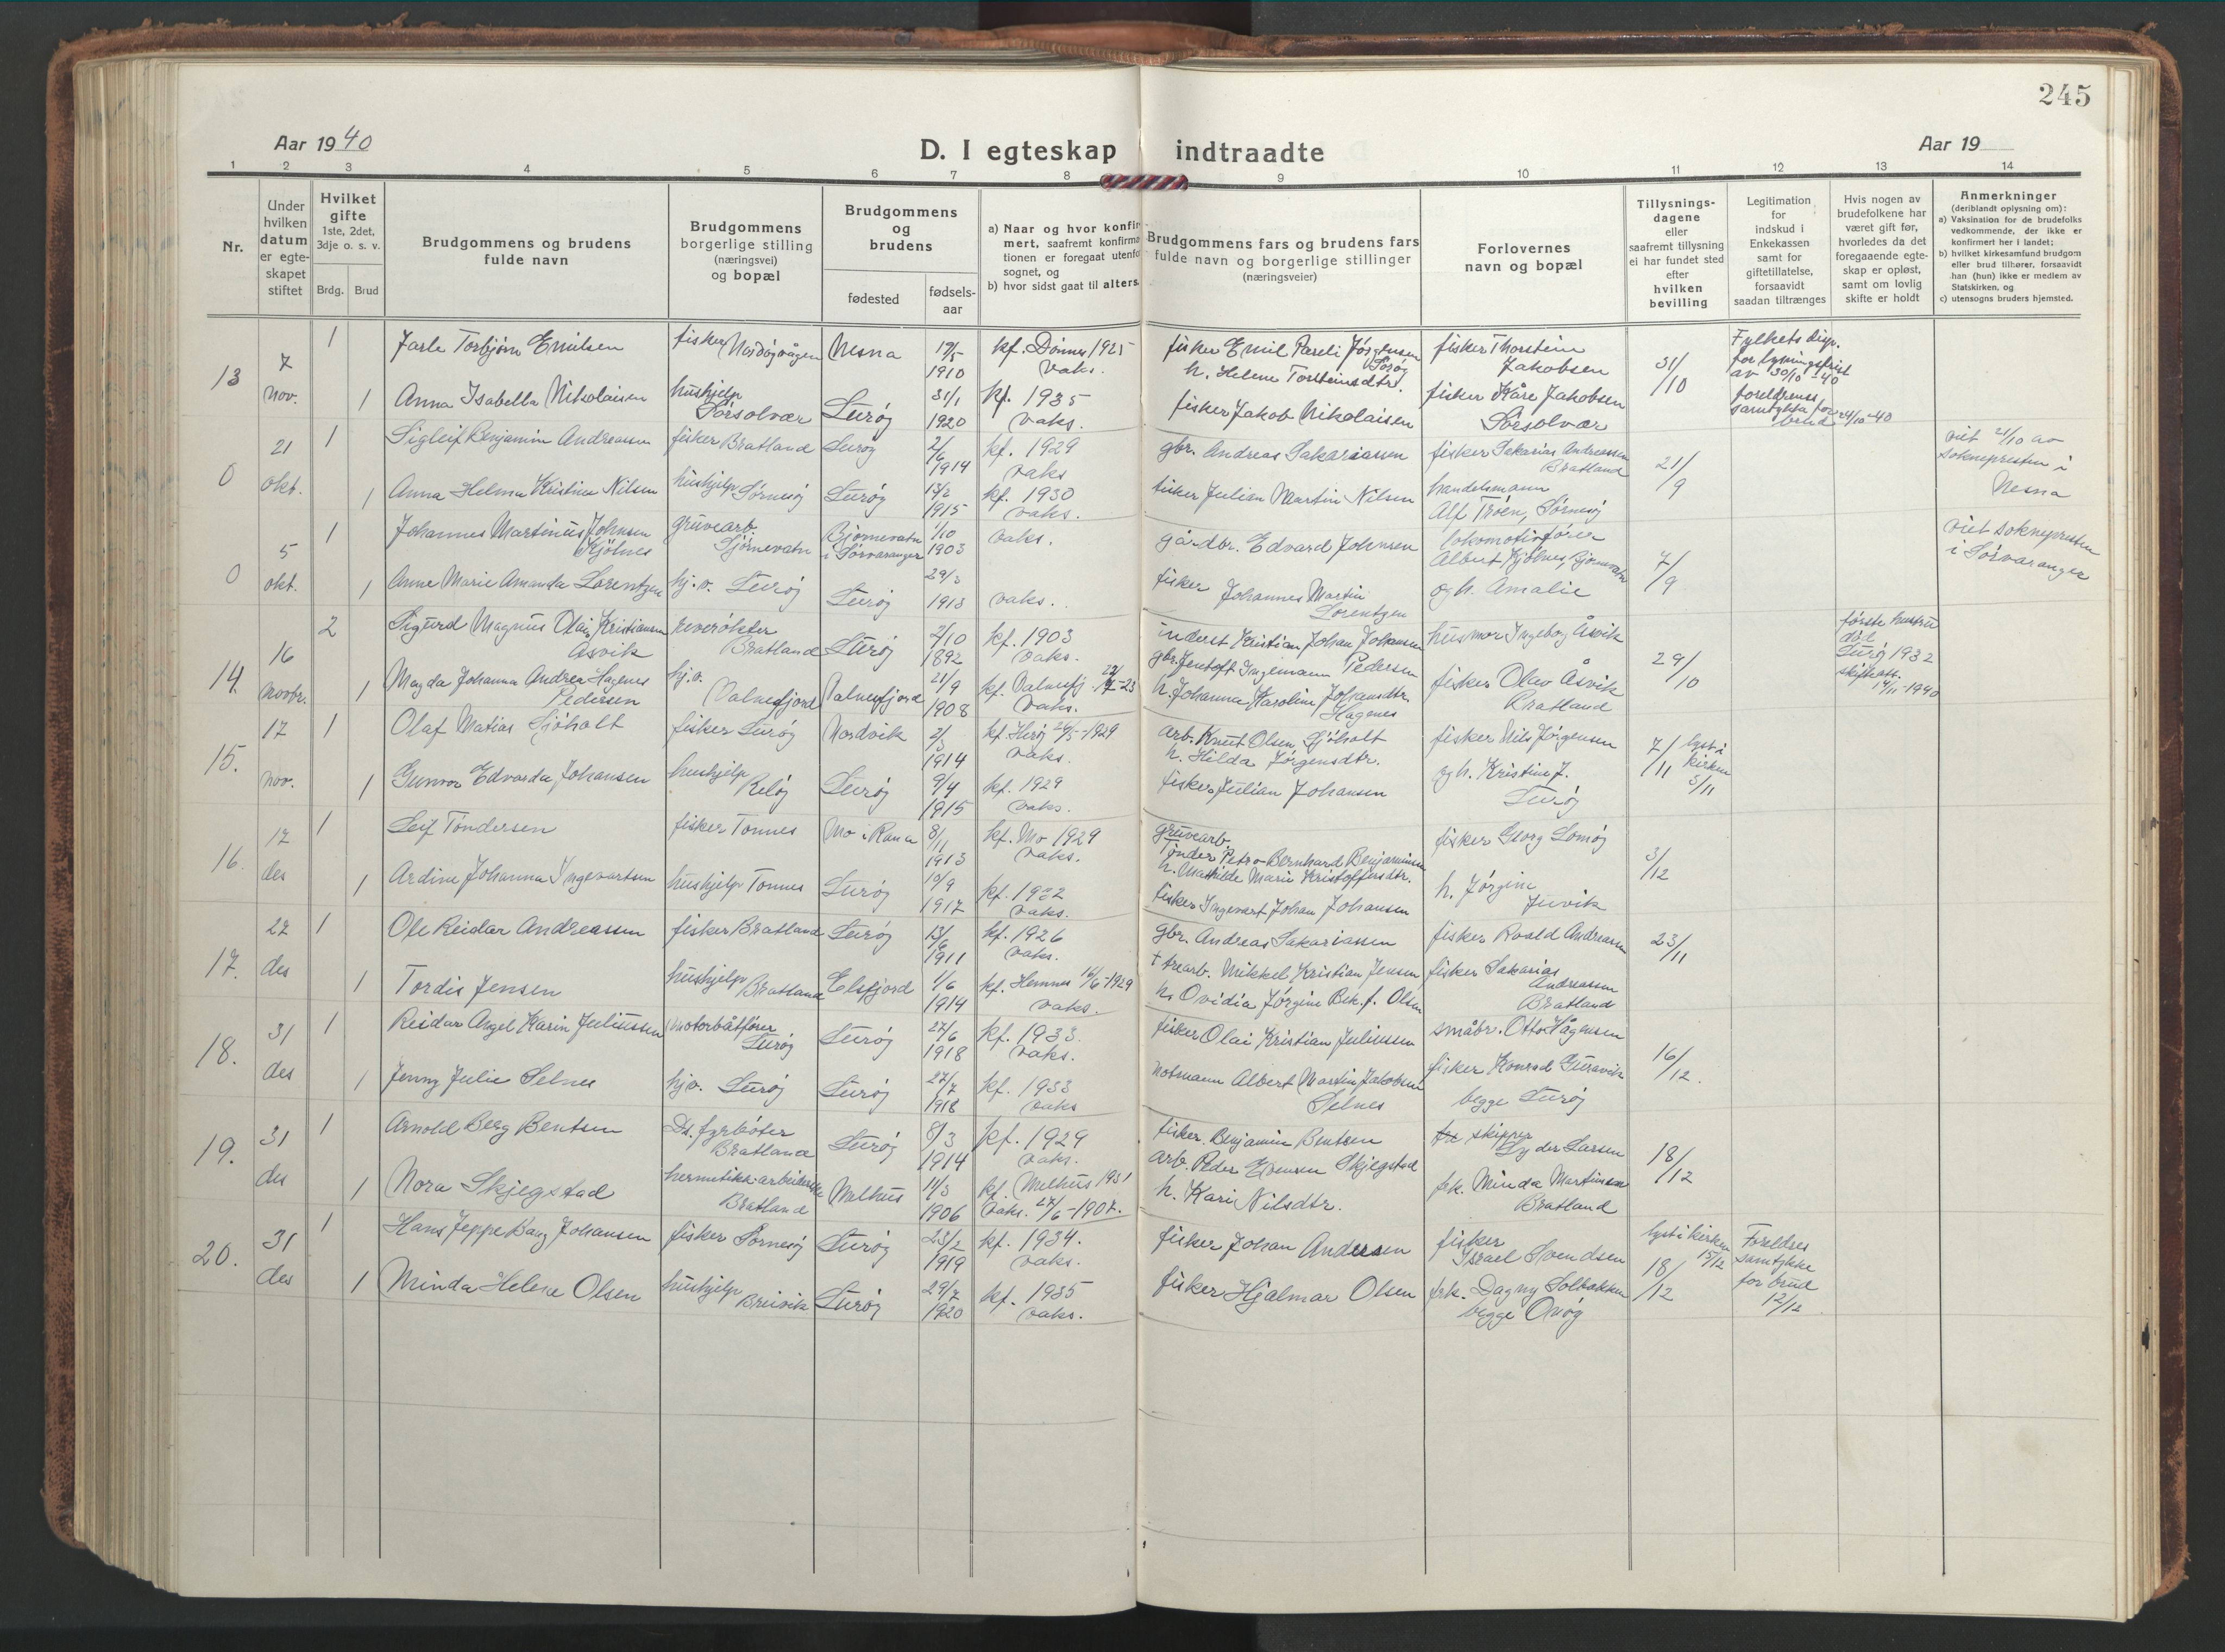 245
Aar 1940
D. I egteskap indtraadte
Aar 19
1 2 3 4 5 6 7 8 9 10 11 12 13 14
Nr.
Under
hvilken
datum
er egte-
skapet
stiftet
Hvilket
gifte
1ste, 2det,
3dje o. s. v.
Brdg. Brud
Brudgommens og brudens
fulde navn
Brudgommens
borgerlige stilling
(næringsvei)
og bopæl
Brudgommens
og
brudens
fødested
fødsels-
aar
a) Naar og hvor konfir
mert, saafremt konfirma
tionen er foregaat utenfo
sognet, og
b) hvor sidst gaat til alters.
Brudgommens fars og brudens fars
fulde navn og borgerlige stillinger
(næringsveier)
Forlovernes
navn og bopæl
Tillysnings-
dagene
eller
saafremt tillysning
ei har fundet sted
efter
hvilken
bevilling
Legitimation
for
indskud i
Enkekassen
samt for
giftetillatelse,
forsaavidt
saadan tiltrænges
Hvis nogen av
brudefolkene har
været gift før,
hvorledes da det
foregaaende egte-
skap er opløst,
samt om lovlig
skifte er holdt
Anmerkninger
(deriblandt oplysning om):
a) Vaksination for de brudefolks
vedkommende, der ikke er
konfirmert her i landet;
b) hvilket kirkesamfund brudgom
eller brud tilhører, forsaavidt
han (hun) ikke er medlem av
Statskirken, og
c) utensogns bruders hjemsted.
13 7 nov.
1 Jarle Torbjørn Emilsen
fisker Nordøyvågen
Nesna
1910
kf. Dönnes 1925
vaks.
fisker Emil Pareli Jørgensen
h. Helene Torsteinsdtr.
fisker Thorstein
Jakobsen
31/10
Fylkets disp.
for lysningsfrist
av 30/10-40
1 Anna Isabella Nikolaisen
hushjelp
Sørsolvær
Lurøy
31/1
1920
kf. 1935
vaks.
fisker Jakob Nikolaisen
fisker Kåre Jakobsen
Sörsolvær
foreldrenes
samtykke for
brud 24/10-40
0 21 okt.
1 Sigleif Benjamin Andreassen
fisker Bratland
Lurøy
2/6
1914
kf. 1929
vaks
gbr. Andreas Sakariassen
fisker Sakarias Andreassen
Bratland
21/9
viet 21/10 av
sokneprestn i
Nesna
1 Anna Helma Kristine Nilsen
hushjelp Sörnesøy
Lurøy
13/2
1915
kf. 1930
vaks.
fisker Julian Martin Nilsen
handelsmann
Alf Tröen, Sörnesøy
0 5 okt.
1 Johannes Martinus Johnsen
Kjölnes
gruvearb.
Bjørnevatn
Bjørnevatn
i Sørvaranger
1/10
1903
vaks.
gårdbr. Edvard Johnsen
lokomotivfører
Albert Kjölnes, Bjørnevatn
7/9
viet soknepresten
i Sörvaranger
1 Anne Marie Amanda Lorentzen
hj.v. Lurøy
Lurøy
29/3
1913
vaks.
fisker Johannes Martin
Lorentzen
og h. Amalie
14. 16 novbr.
2 Sigurd Magnus Olai Kristiansen
Åsvik
reverökter
Bratland
Lurøy
2/10
1892
kf. 1903
vaks.
inderst Kristian Johan Johansen
husmor Ingeborg Åsvik
29/10
første hustru
död
Lurøy 1932
skifteatt.
14/11-1940
1 Magda Johanna Andrea Hagenes
Pedersen
hj.v.
Valnesfjord
Valnesfjord
21/9
1908
vaks.
gbr. Jentoft Ingemann Pedersen
h. Johanna Karoline Johansdtr.
Hagenes
fisker Olav Åsvik
Bratland
15. 17 nov.
1 Olaf Matias Sjöholt
fisker Lurøy
Nordvik
1914
kf. Herøy 26/5-1929
vaks.
arb. Knut Olsen Sjöholt
h. Hilda Jörgensdtr.
fisker Nils Jørgensen
7/11
lyst i
kirken
3/11
1 Gunvor Edvarda Johansen
hushjelp
Reløy
Lurøy
9/4
1915
kf. 1929
vaks.
fisker Julian Johansen
og h. Kristine J.
Lurøy
16. 17 des
1 Leif Töndersen
fisker Tonnes
Mo i Rana
8/1
1913
kf. Mo 1929
vaks.
gruvearb.
Tönder Petro Bernhard Benjaminsen
h. Mathilde Marie Kristoffersdtr.
fisker Georg Lomøy
3/12
1 Ardine Johanna Ingevartsen
hushjelp Tonnes
Lurøy
10/9
1917
kf. 1932
vaks.
fisker Ingevart Johan Johansen
h. Jörgine
Juvik
17. 27 des
1 Ole Reidar Andreassen
fisker Bratland
Lurøy
13/6
1911
kf. 1926
vaks.
gbr. Andreas Sakariassen
fisker Roald Andreassen
23/11
1 Tordis Jensen
hushjelp
Bratland
Elsfjord
1/6
1914
kf. Hemnes 16/6-1929
vaks.
+ trearb. Mikkel Kristian Jensen
h. Ovidia Jörgine Bek. f. Olsen
fisker Sakarias
Andreassen
Bratland
18. 31 des
1 Reidar Angel Karin Juliussen
motorbåtfører
Lurøy
Lurøy
27/6
1918
kf. 1933.
vaks.
fisker Olai Kristian Juliussen
småbr. Otto Hågensen
16/12.
1 Jenny Julie Selnes
hjv. Lurøy
Lurøy
27/7
1918
kf. 1933
vaks
notmann Albert Martin Jakobsen
Selnes
fisker Konrad Guravik
begge Lurøy
19. 31 des
1 Arnold Berg Bentsen
Ds. fyrböter
Bratland
Lurøy
8/3
1914
kf. 1929
vaks.
fisker Benjamin Bentsen
skipper
Lyder Larsen
18/12
1 Nora Skjegstad
hermetikk-arbeiderske
Bratland
Melhus
11/3
1906
kf. Melhus 1931
vaks. 27/6-1907.
arb. Peder Evensen Skjegstad
h. Kari Nilsdtr.
frk. Minda Martinsen
Bratland
20. 31 des
1 Hans Jeppe Bang Johansen
fisker Sörnesøy
Lurøy
23/2
1919
kf. 1934.
vaks.
fisker Johan Andersen
fisker
Israel Svendsen
lyst i kirken
15/12
18/12
Foreldres
samtykke
for brud
12/12
1 Minda Helene Olsen
hushjelp
Breivik
Lurøy
29/7
1920
kf. 1935
vaks.
fisker Hjalmar Olsen
frk. Dagny Solbakken
begge Onøy